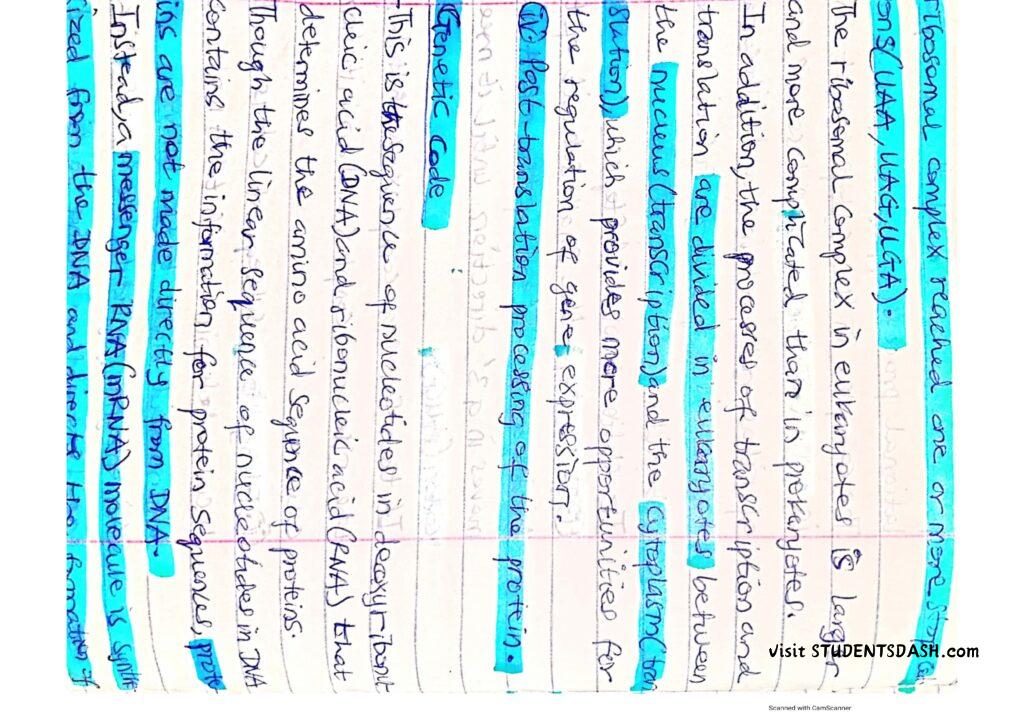 ribosomal complex reached one or more stop co
ons(UAA, UAG, UGA).
The ribosomal complex in eukaryotes is larger
and more complicated than in prokaryotes.
In addition, the processes of transcription and
translation are divided in eukaryotes between
the nucleus(transcription) and the cytoplasm(tran
slation), which provides more opportunities for
the regulation of gene expression.
iv) Post-translation processing of the protein.
Genetic Code
This is the sequence of nucleotides in deoxyribonu
cleic acid (DNA) and ribonucleic acid (RNA) that
determines the amino acid sequence of proteins.
Though the linear sequence of nucleotides in DNA
contains the information for protein sequences, prote
ins are not made directly from DNA.
Instead, a messenger RNA (mRNA) molecule is synthe
sized from the DNA and directs the formation of
visit STUDENTSDASH.com
Scanned with CamScanner